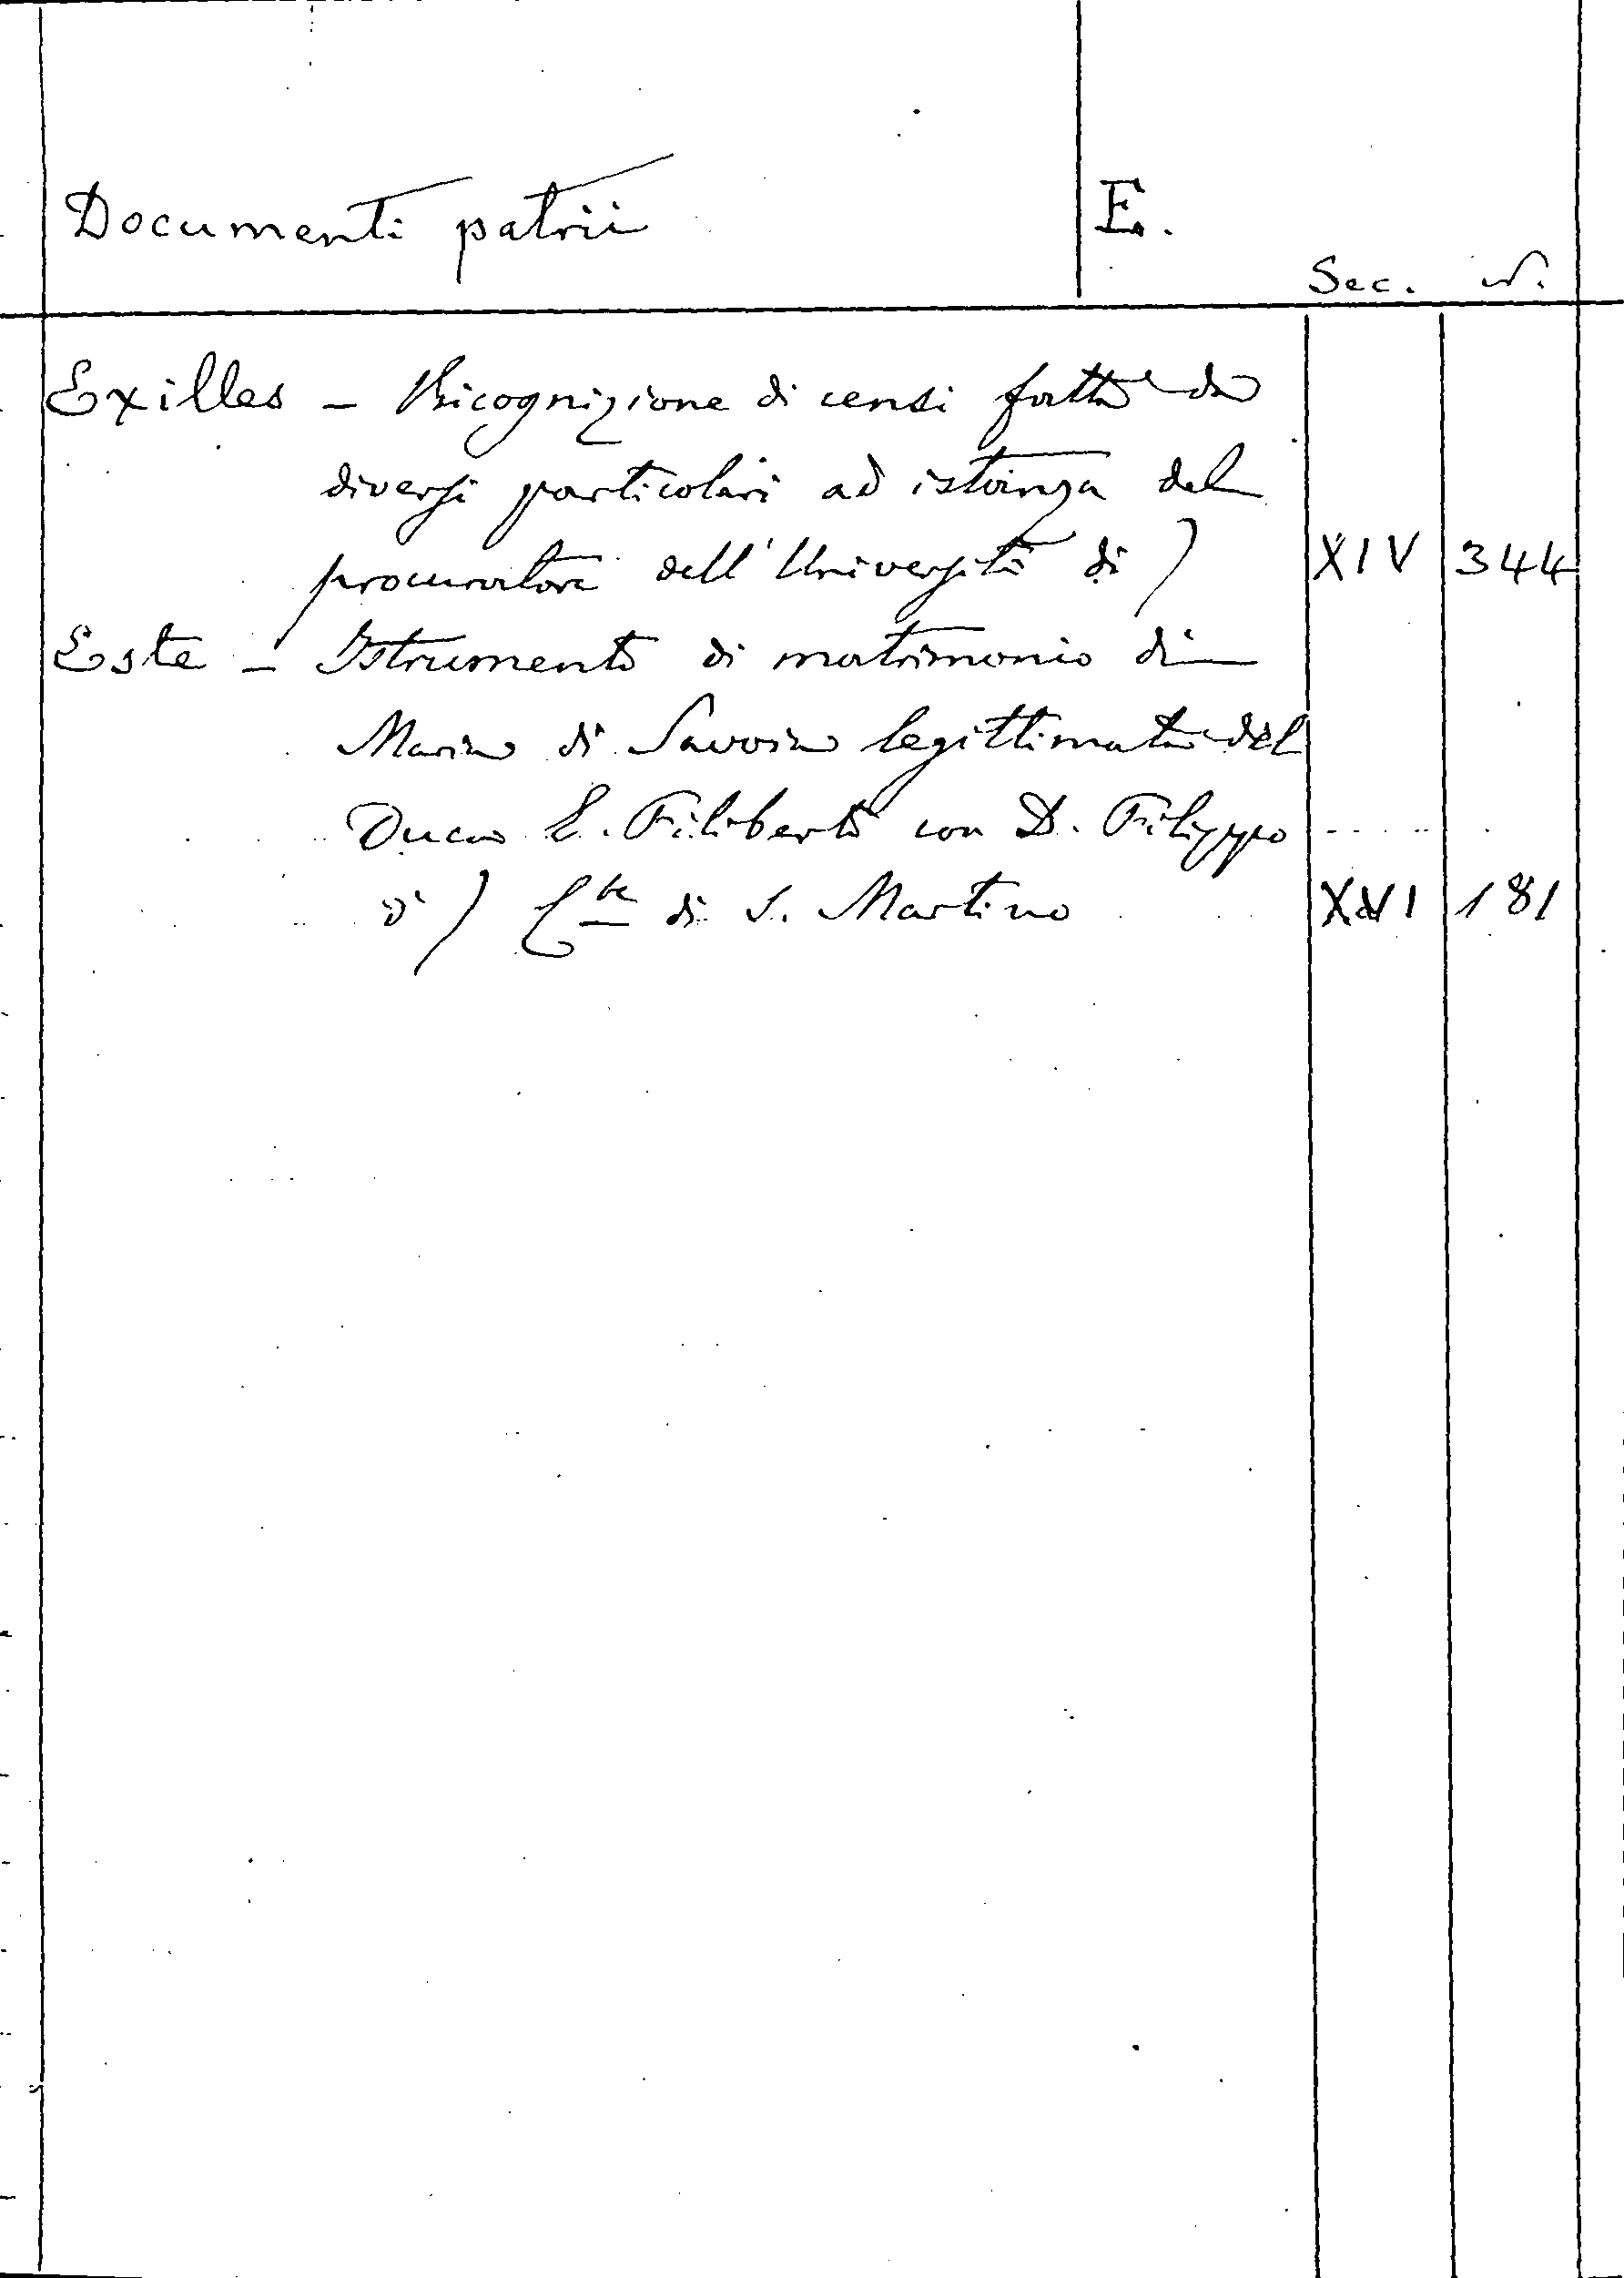 Documenti patrii E.
Sec. N.
Exilles - Ricognizione di censi fatta da
diversi particolari ad istanza del
procuratore dell'Università di ) XIV 344
Este - Istrumento di matrimonio di
Maria di Savoia legittimata del
Duca E. Filiberto con D. Filippo
d' ) di S. Martino XVI 181